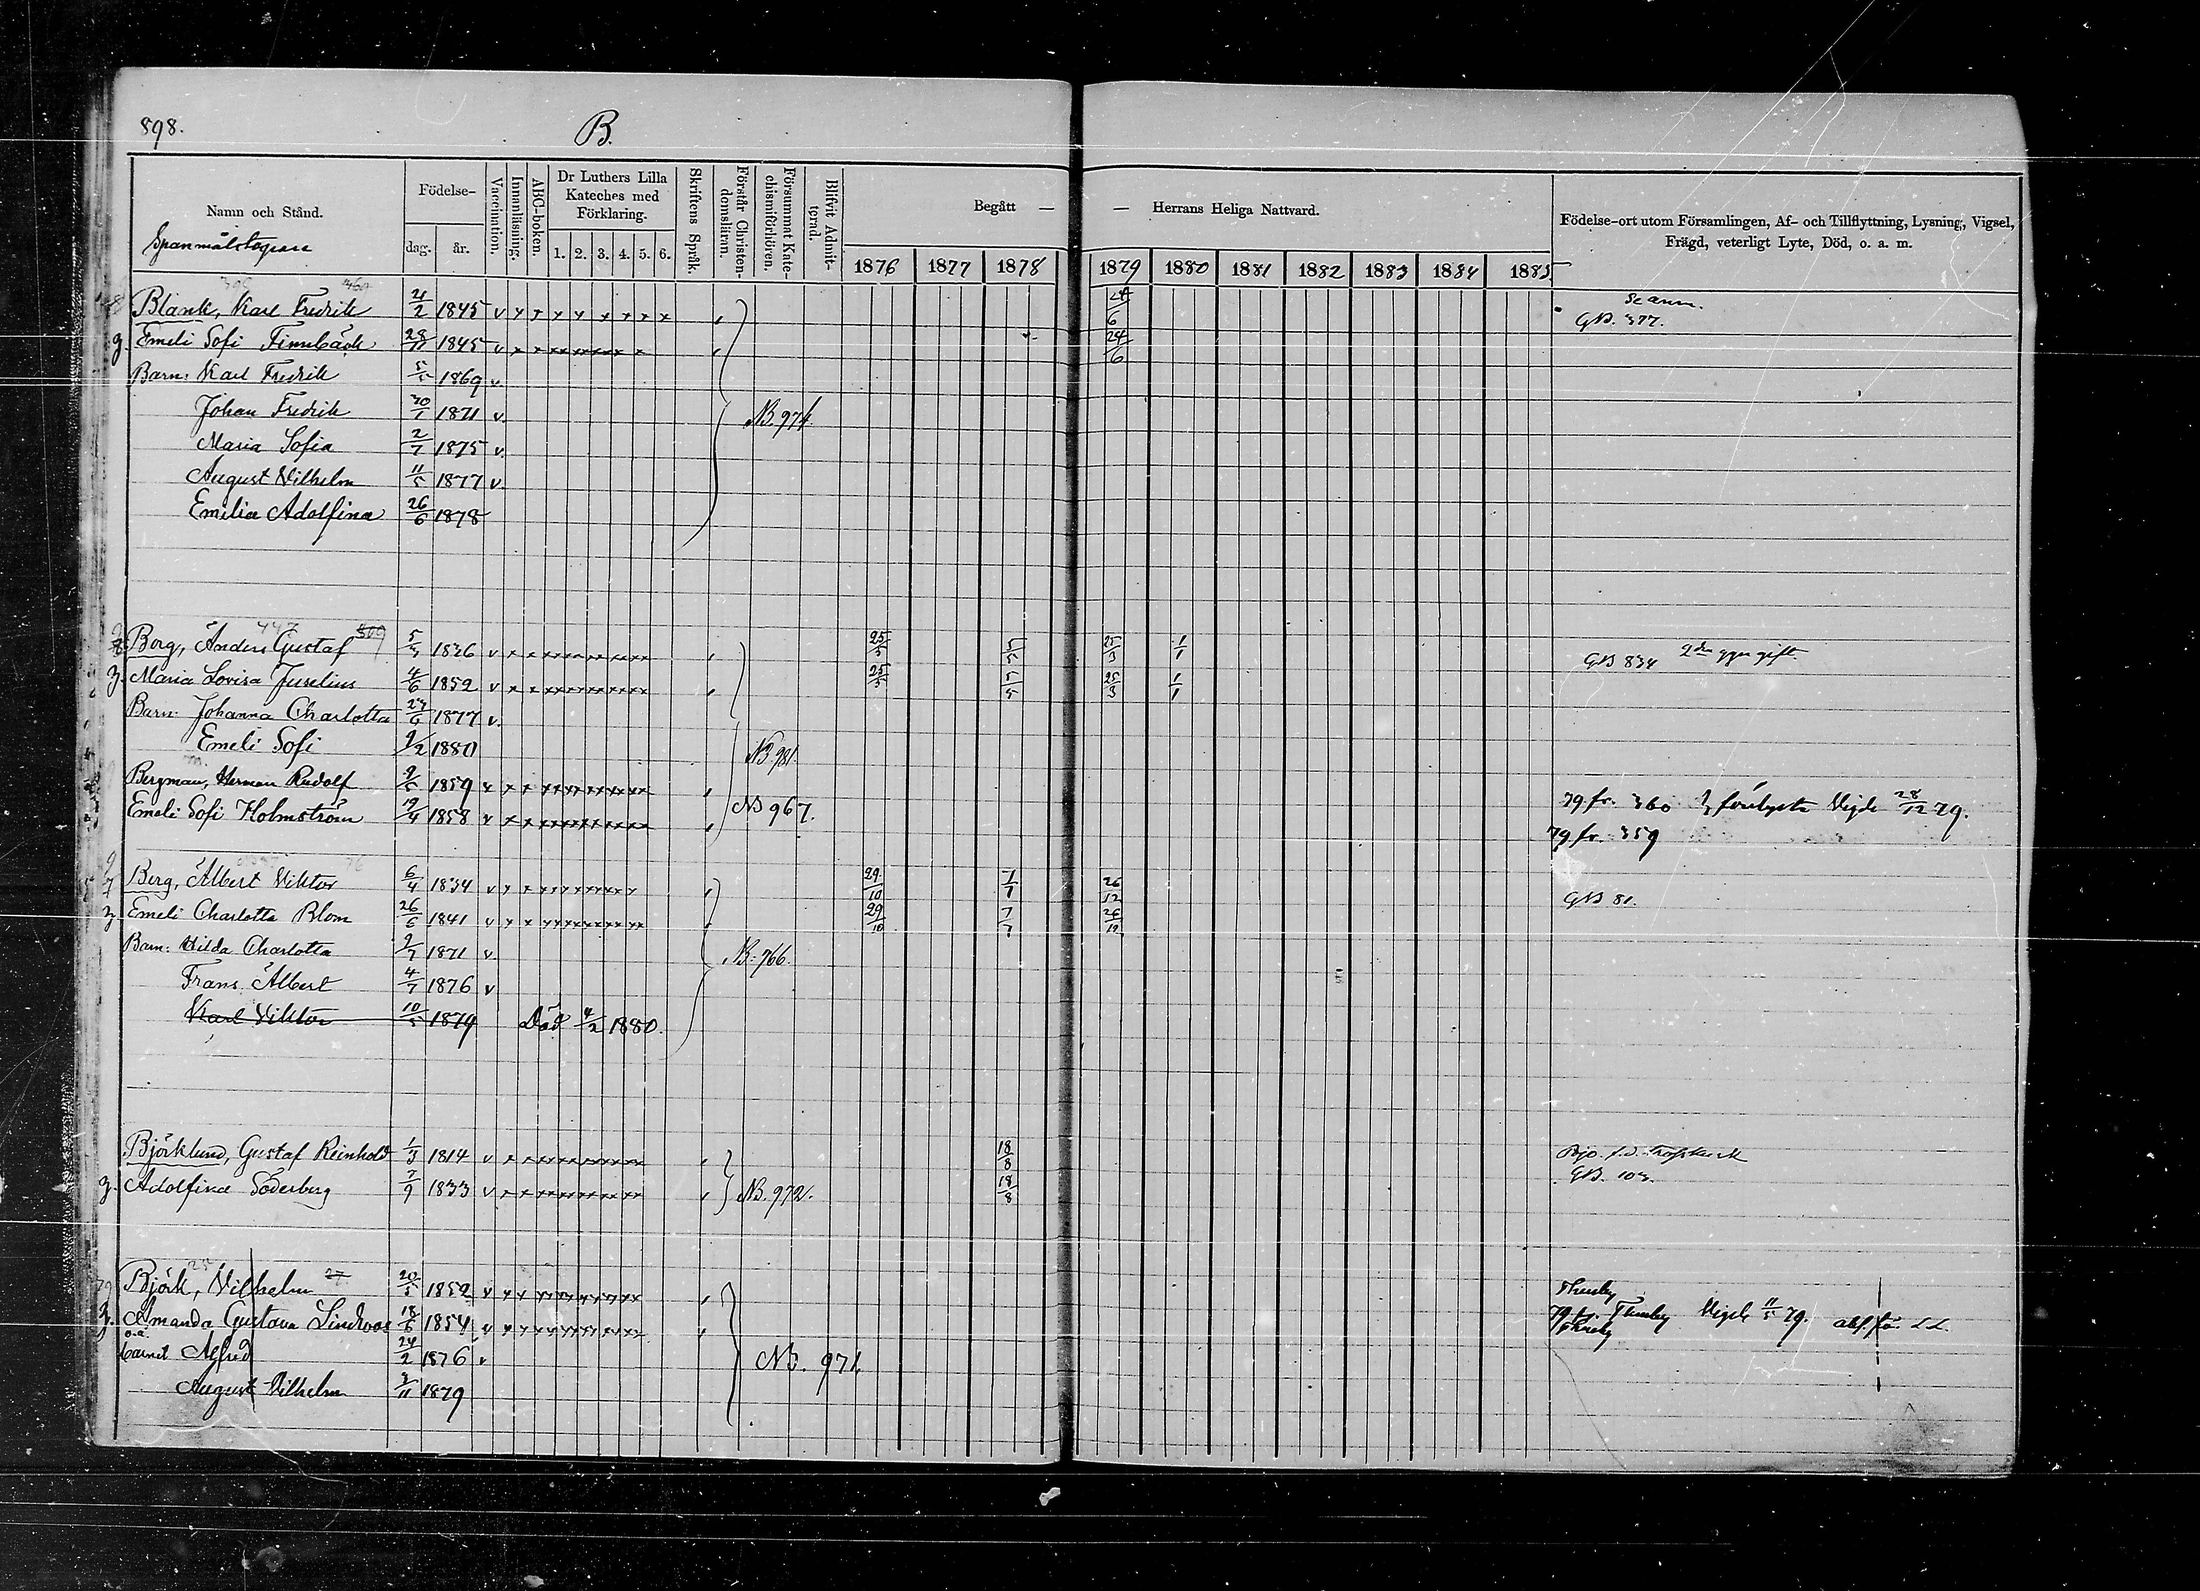 898.
B.
Namn och Stånd.
Födelse-
dag. år.
Vaccination.
Innanläsning.
ABC-boken.
Dr Luthers Lilla Kateches med Förklaring.
1. 2. 3. 4. 5. 6.
Skriftens Språk.
Förstår Christendomsläran.
Försummat Katechismiförhören.
Blifvit Admitterad.
Begått — — Herrans Heliga Nattvard.
1876 1877 1878 1879 1880 1881 1882 1883 1884 1885
Födelse-ort utom Församlingen, Af- och Tillflyttning, Lysning, Vigsel,
Frägd, veterligt Lyte, Död, o. a. m.
Blank, Karl Fredrik 21/2 1845 v 24/6
GB. 377.
Emeli Sofi Finnbäck 1845 v 24/6
Barn: Karl Fredrik 5/5 1869 v
Johan Fredrik 30/1 1871 v. NB. 974.
Maria Sofia 2/7 1875 v.
August Vilhelm 11/5 1877 v.
Emilia Adolfina 26/6 1878
447 509
Borg, Anders Gustaf 1836 v 25/5 5/5 25/3 1/1 GB 834 2dra ggn gift.
Maria Lovisa Juselius 4/6 1852 v 25/5 5/5 25/3 1/1
Barn: Johanna Charlotta 1877 v.
Emeli Sofi 9/2 1880 NB. 981.
Bergman, Herman Rudolf 1859 v 79 fr. 360 Vigde 28/12 79.
Emeli Sofi Holmström 19/4 1858 v NB 967. 79 fr. 359
Berg, Albert Viktor 6/4 1834 v 29/10 1/1 26/12 GB 81.
Emeli Charlotta Blom 26/6 1841 v 29/10 7/7 26/12
Barn: Hilda Charlotta 9/7 1871 v NB: 966.
Frans Albert 4/7 1876 v
Karl Viktor 10/5 1879 Död 4/2 1880.
Björklund, Gustaf Reinhold 1/3 1814 v 18/8
Adolfina Söderberg 7/9 1833 v NB. 972. 18/8 GB. 103.
Björk, Vilhelm 27 20/5 1852 v Thusby
Amanda Gustava Lindroos 18/6 1854 v 79 fr. Thusby Vigde 11/5 79.
o.ä. barnet Alfred 24/2 1876 v NB. 971.
August Vilhelm 3/11 1879